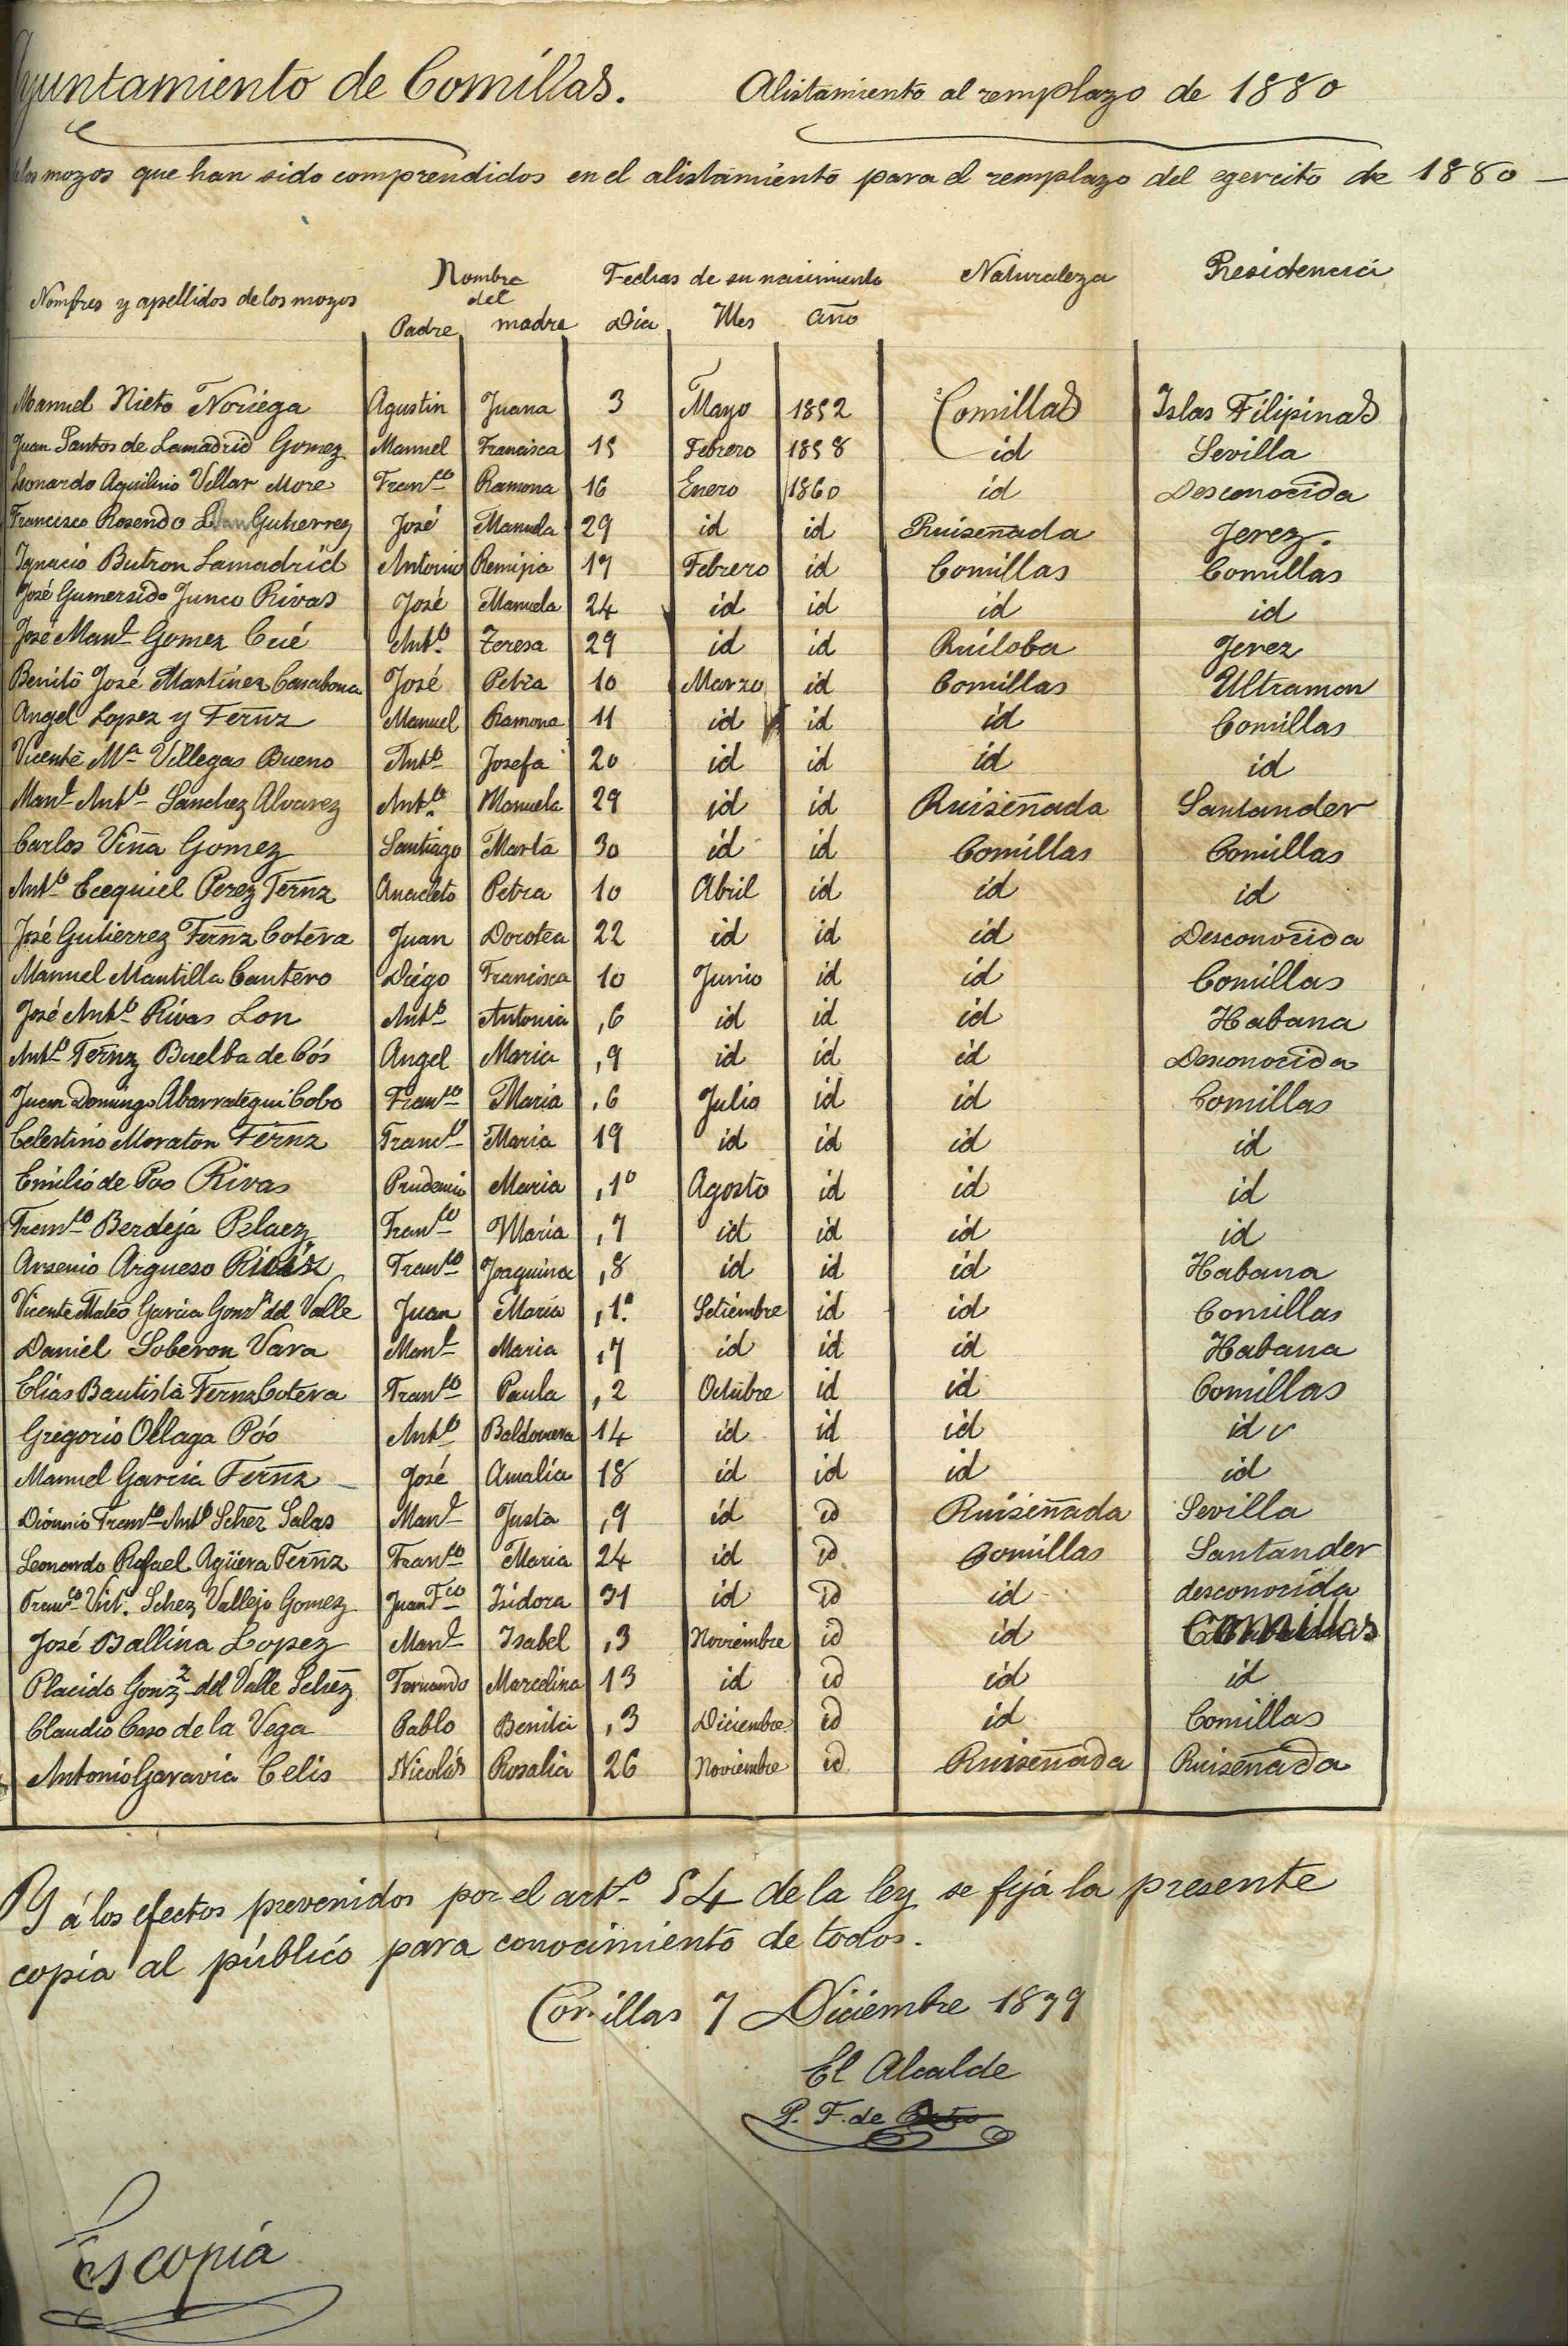 Ayuntamiento de Comillas. Alistamiento al remplazo de 1880
de los mozos que han sido comprendidos en el alistamiento para el remplazo del egercito de 1880 —
Nombres y apellidos de los mozos Nombre del Fechas de su nacimiento Naturaleza Residencia
Padre madre Dia Mes Año
Manuel Nieto Noriega Agustin Juana 3 Mayo 1852 Comillas Islas Filipinas
Juan Santos de Lamadrid Gomez Manuel Francisca 15 Febrero 1858 id Sevilla
Leonardo Aquilino Villar More Franco Ramona 16 Enero 1860 id Desconocida
Francisco Rosendo Gutierrez José Manuela 29 id id Ruiseñada Jerez.
Ignacio Butron Lamadrid Antonio Remijia 17 Febrero id Comillas Comillas
José Gumersido Junco Rivas José Manuela 24 id id id id
José Manl Gomez Cué Anto Teresa 29 id id Ruiloba Jerez
Benito José Martinez Casabona José Petra 10 Marzo id Comillas Ultramar
Angel Lopez y Fernz Manuel Ramona 11 id id id Comillas
Vicente Ma Villegas Bueno Anto Josefa 20 id id id id
Manl Anto Sanchez Alvarez Anto Manuela 29 id id Ruiseñada Santander
Carlos Viña Gomez Santiago Marta 30 id id Comillas Comillas
Anto Ecequiel Perez Fernz Anacleto Petra 10 Abril id id id
José Gutierrez Fernz Cotera Juan Dorotea 22 id id id Desconocida
Manuel Mantilla Cantero Diego Francisca 10 Junio id id Comillas
José Anto Rivas Lon Anto Antonia ,6 id id id Habana
Anto Fernz Buelba de Cós Angel Maria ,9 id id id Desconocida
Juan Domingo Abarrategui Cobo Franco Maria ,6 Julio id id Comillas
Celestino Moraton Fernz Franco Maria 19 id id id id
Emilio de Poo Rivas Prudencio Maria ,1o Agosto id id id
Franco Berdeja Pelaez Franco Maria ,7 id id id id
Arsenio Argueso Franco Joaquina ,8 id id id Habana
Vicente Mateo Garcia Gonz del Valle Juan Maria ,1o Setiembre id id Comillas
Daniel Soberon Vara Manl Maria ,7 id id id Habana
Elias Bautista Fernz Cotera Franco Paula ,2 Octubre id id Comillas
Gregorio Ollaga Póo Anto Baldomera 14 id id id id
Manuel Garcia Fernz José Amalia 18 id id id id
Dionisio Franco Anto Schez Salas Manl Justa ,9 id id Ruiseñada Sevilla
Leonardo Rafael Agüera Fernz Franco Maria 24 id id Comillas Santander
Franco Vict. Schez Vallejo Gomez Juan Fco Isidora 31 id id id desconocida
José Ballina Lopez Manl Isabel ,3 Noviembre id id Comillas
Placido Gonz del Valle Schez Fernando Marcelina 13 id id id id
Claudio Caso de la Vega Pablo Benita ,3 Diciembre id id Comillas
Antonio Garavia Celis Nicolás Rosalia 26 Noviembre id Ruiseñada Ruiseñada
Y á los efectos prevenidos por el arto 54 de la ley se fija la presente
copia al público para conocimiento de todos.
Comillas 7 Diciembre 1879
El Alcalde
P. F. de
Es copia